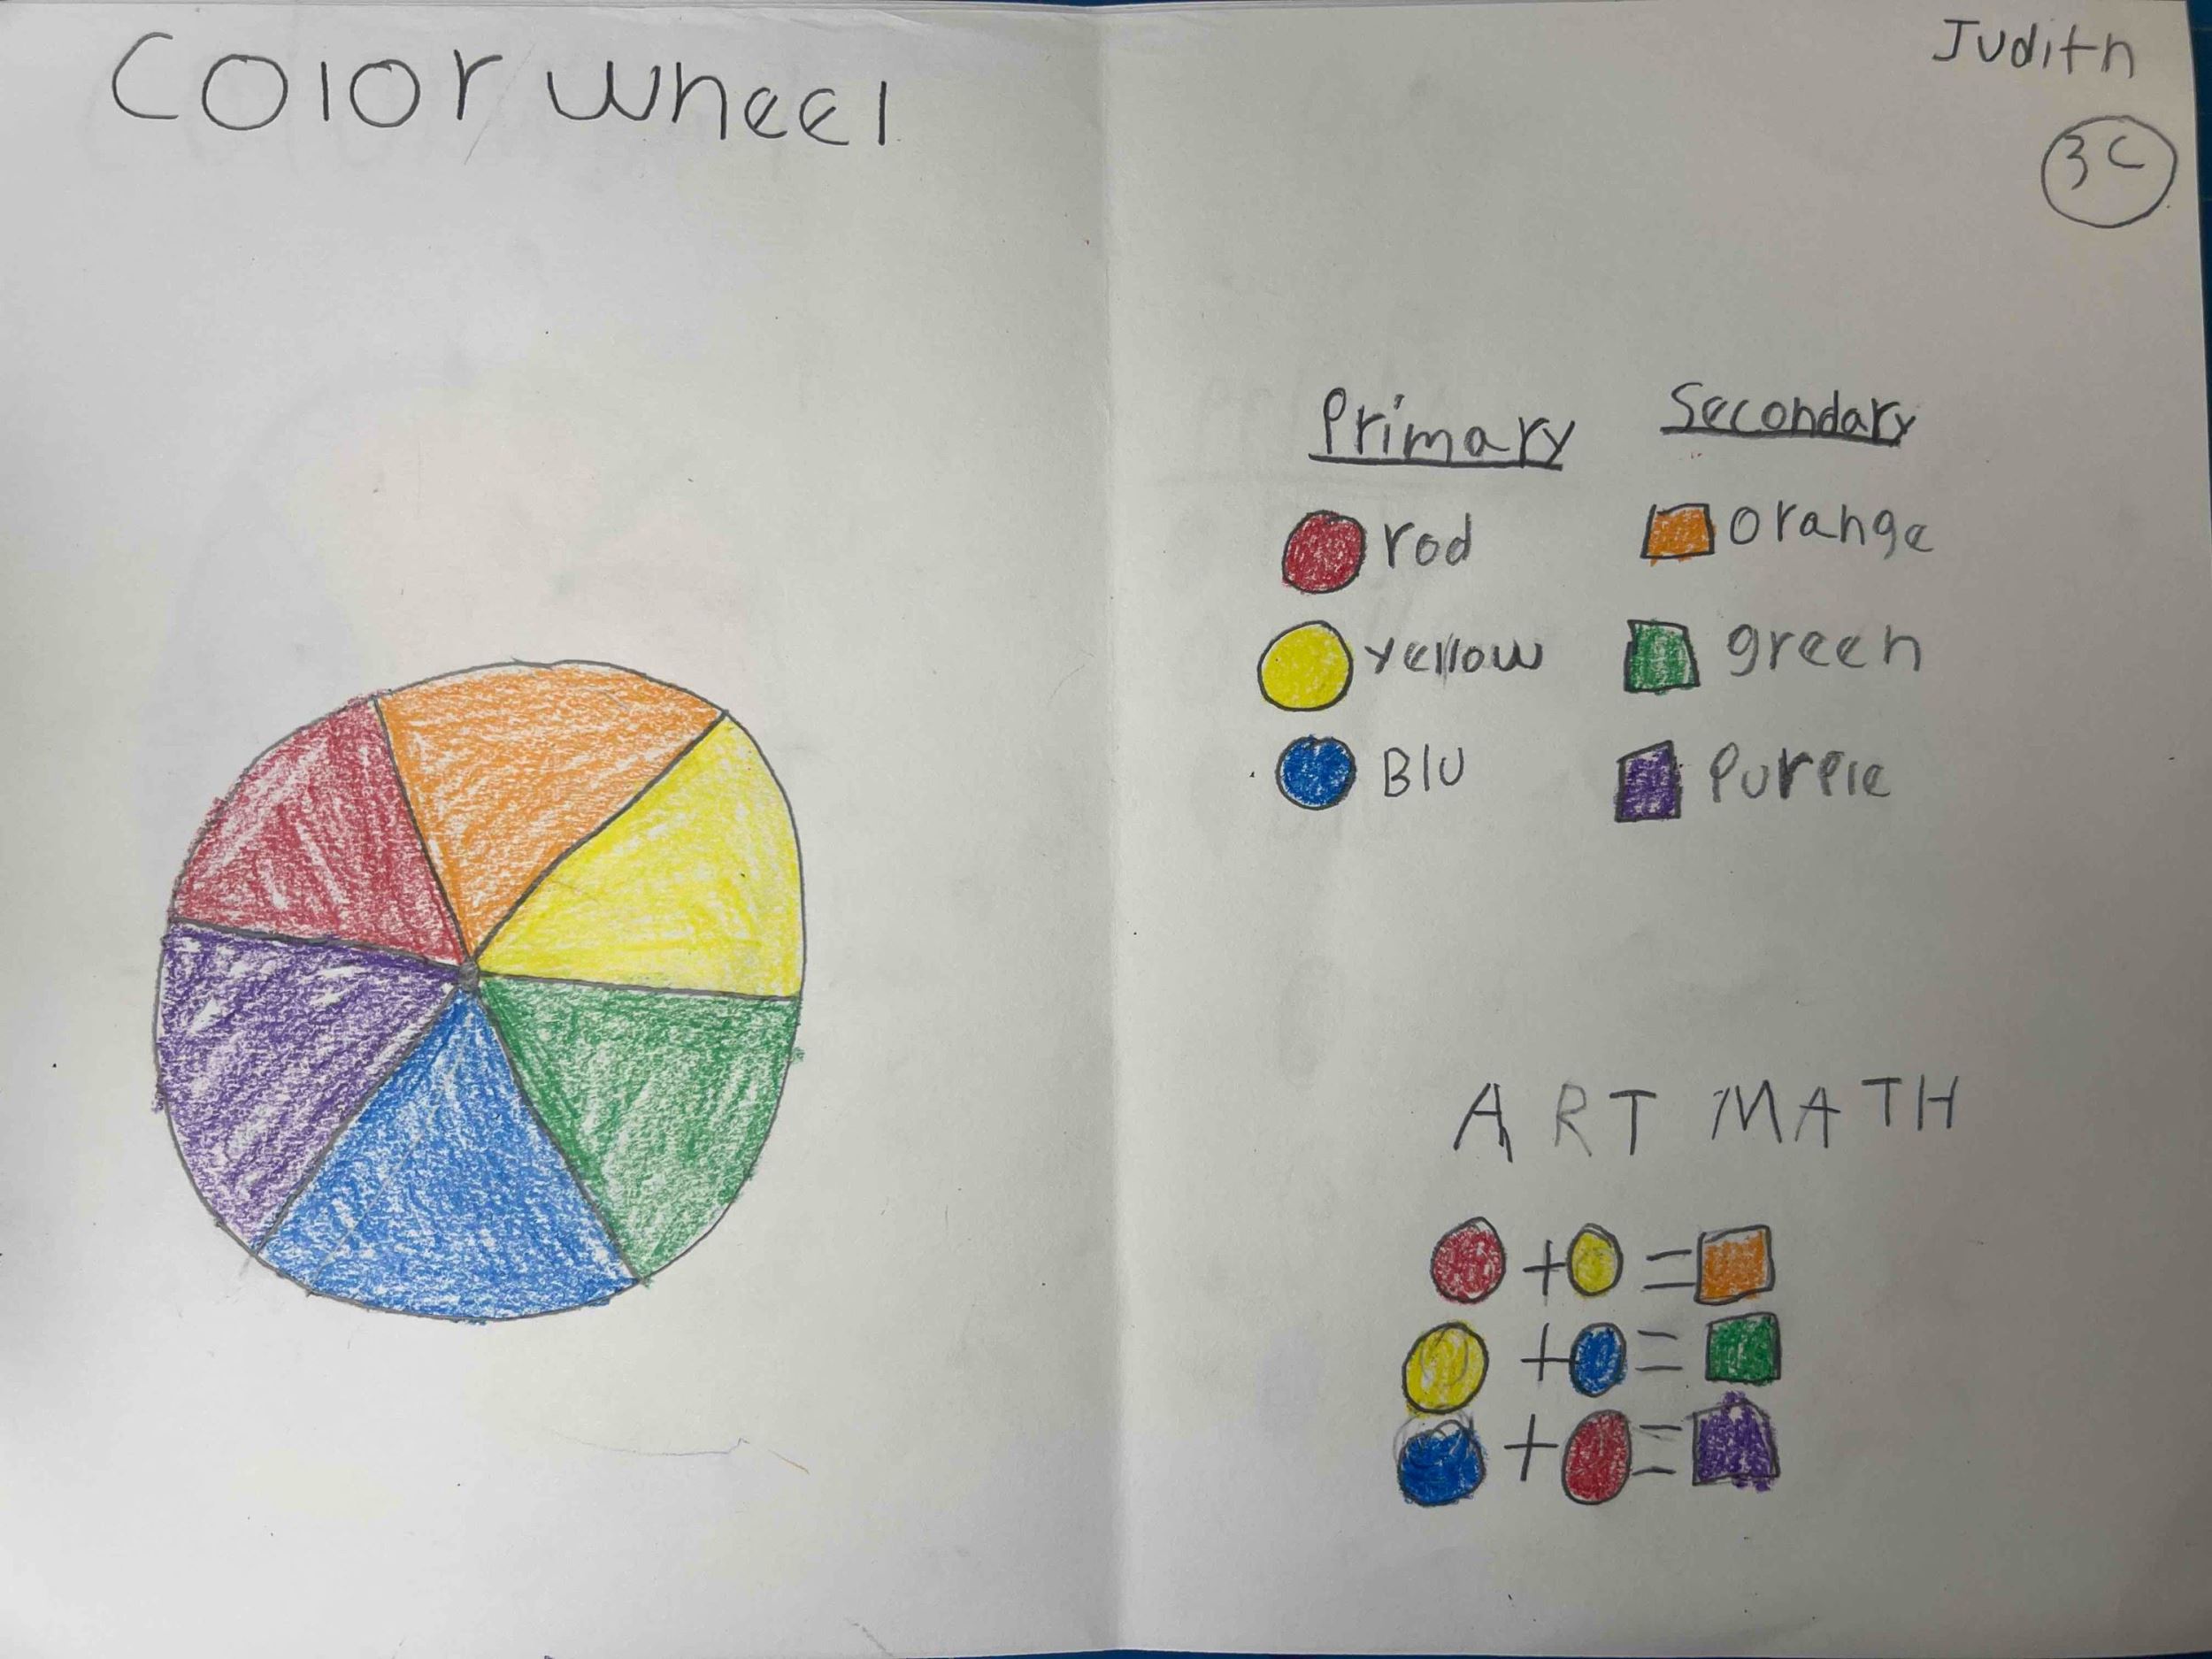 Color wheel
Judith
3C
Primary
Secondary
rod
orange
yellow
green
Blu
Purple
ART MATH
+ =
+ =
+ =